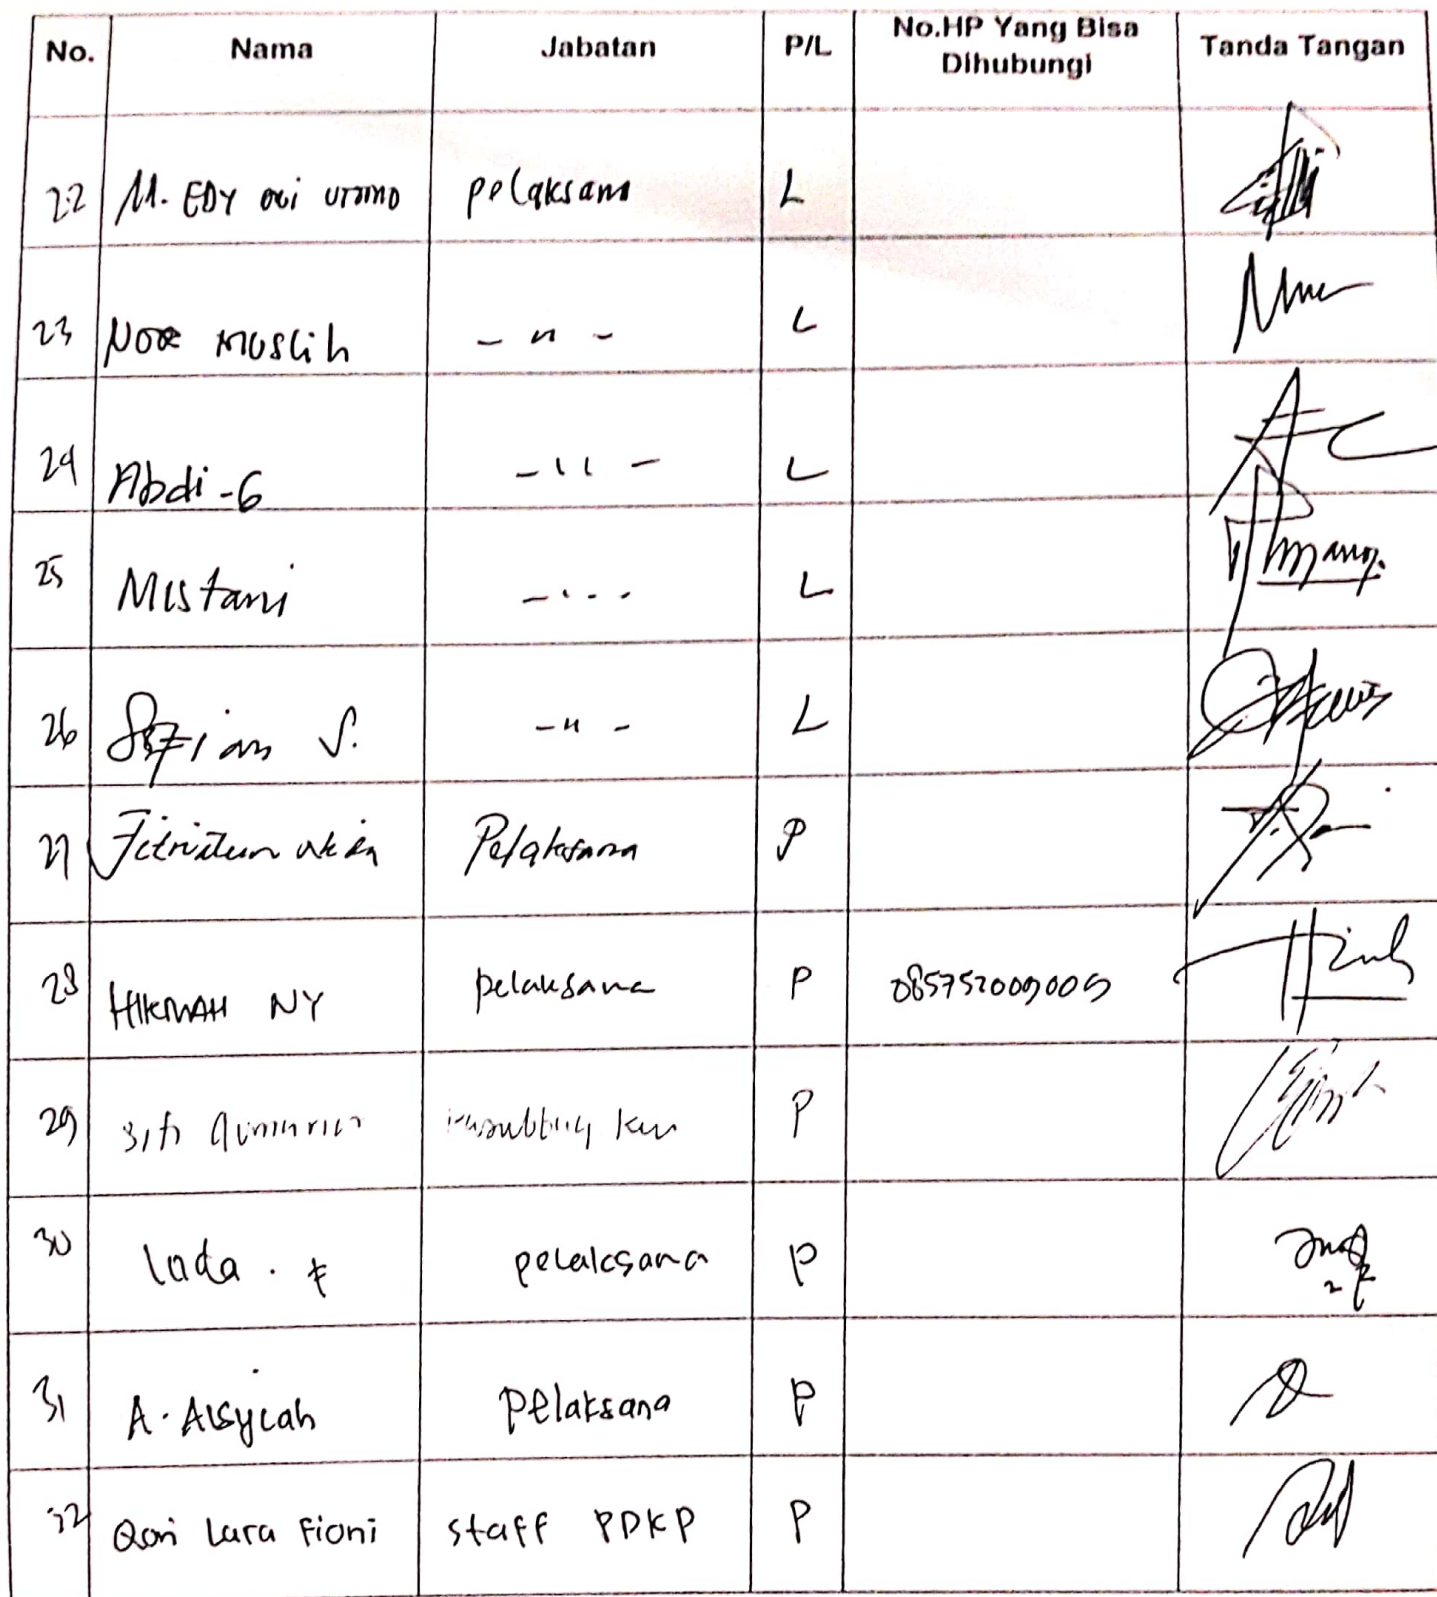 No. Nama Jabatan P/L No.HP Yang Bisa Dihubungi Tanda Tangan
22 M. EDY Dwi UTOMO pelaksana L
23 NOR MUSLIH - " - L
24 Abdi-G - " - L
25 Mistani - " - L
26 Sofian S. - " - L
27 Pelaksana P
28 HIKMAH NY pelaksana P 085752009009
29 Siti P
30 lada . F pelaksana P
31 A. Aisyiah pelaksana P
32 Qori Lara Fioni staff PDKP P